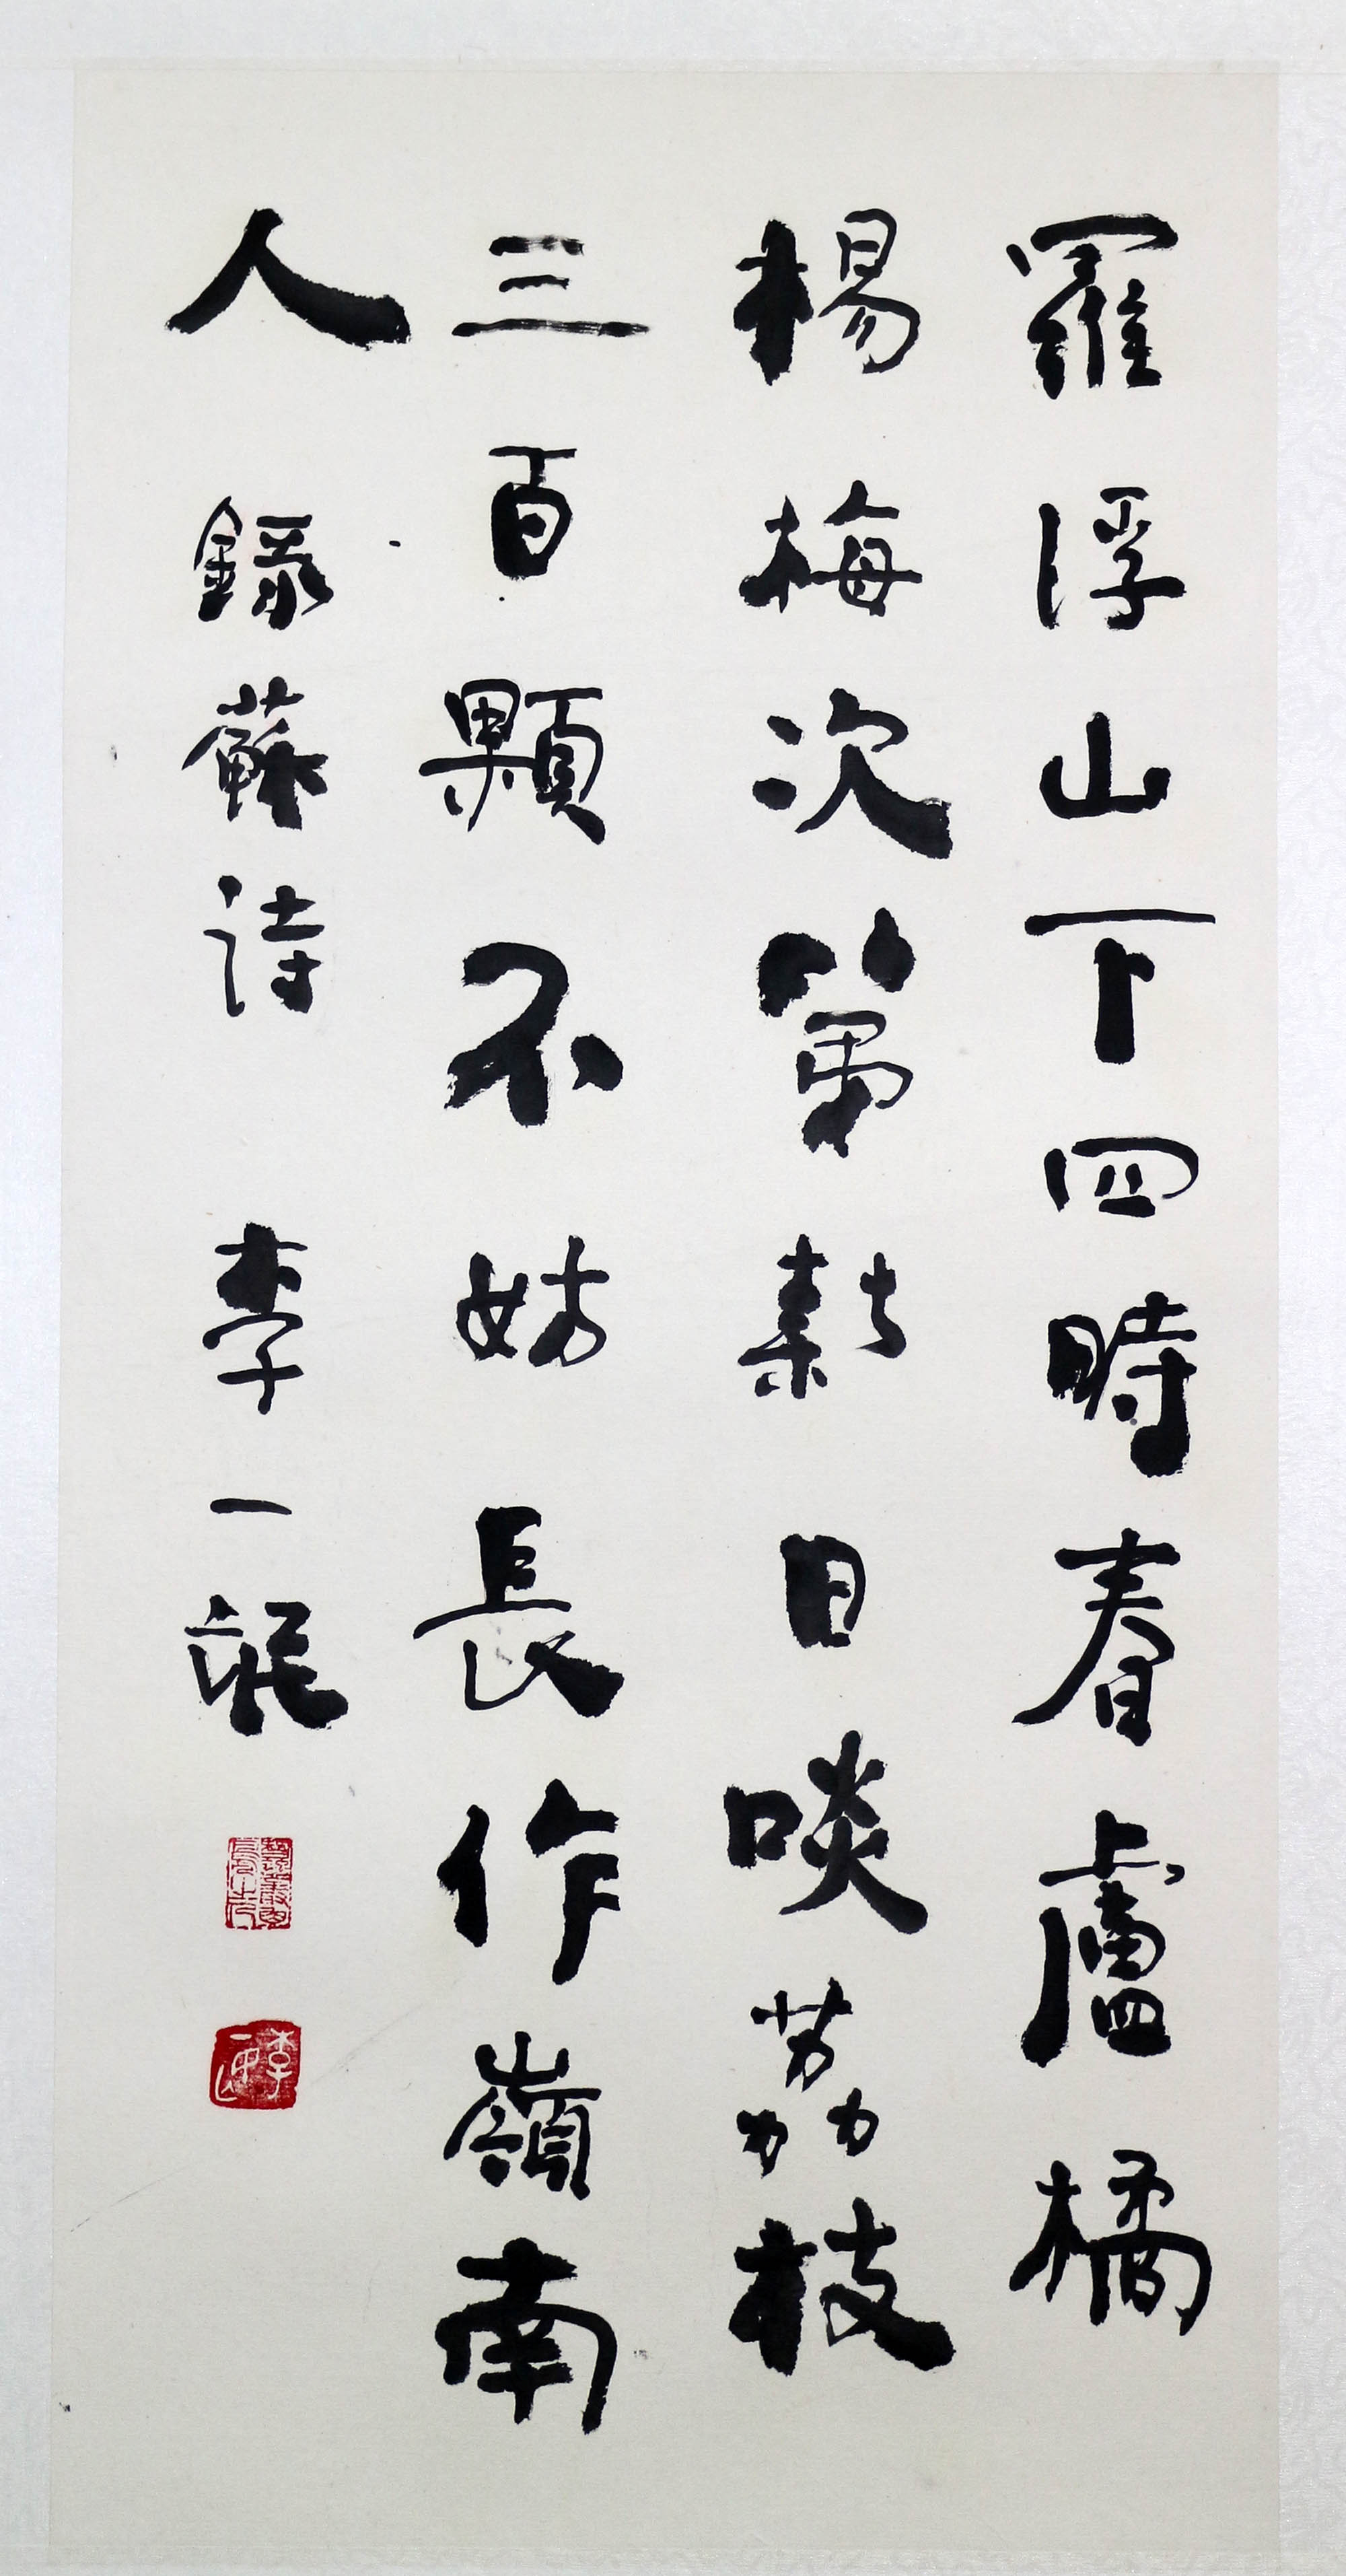 羅浮山下四時春盧橘
楊梅次第新日啖荔枝
三百顆不妨長作嶺南
人 錄蘇詩 李一氓
李一氓